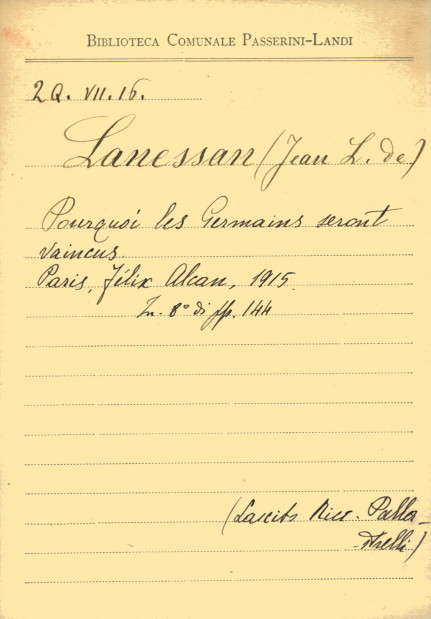 BIBLIOTECA COMUNALE PASSERINI-LANDI
2Q. VII. 16.
Lanessan (Jean L. de)
Pourquoi les Germains seront
vaincus
Paris, Félix Alcan, 1915.
In. 8° di pp. 144
(Lascito Nicc. Palla-
-strelli)